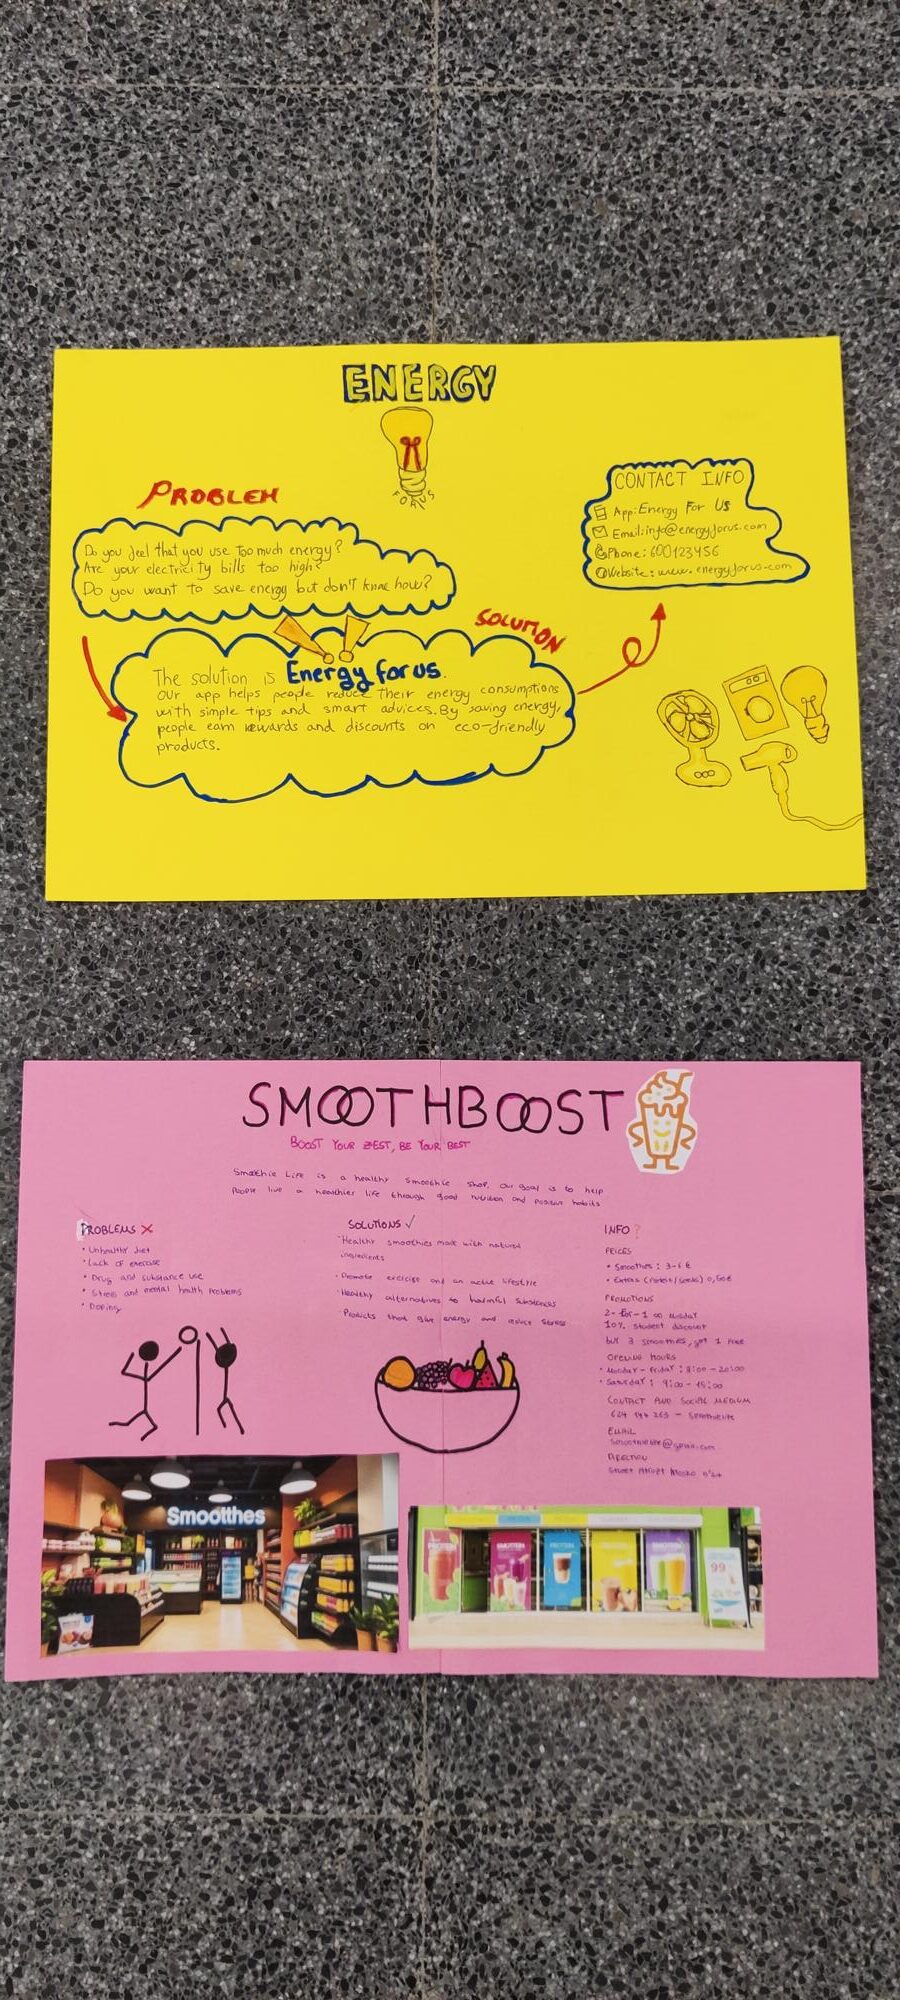 ENERGY
FORUS
PROBLEM
Do you feel that you use too much energy?
Are your electricity bills too high?
Do you want to save energy but don't know how?
SOLUTION
The solution is Energy for us.
our app helps people reduce their energy consumptions
with simple tips and smart advices. By saving energy,
people earn rewards and discounts on eco-friendly
products.
CONTACT INFO
App: Energy For Us
Email: info@energyforus.com
Phone: 600123456
Website: www.energyforus.com
SMOOTHBOOST
BOOST YOUR ZEST, BE YOUR BEST
Smoothie Life is a healthy smoothie shop. Our goal is to help
people live a healthier life through good nutrition and positive habits
PROBLEMS X
• Unhealthy diet
• Lack of exercise
• Drug and substance use
• Stress and mental health problems
• Doping
SOLUTIONS ✓
• Healthy smoothies made with natural
ingredients
• Promote exercise and an active lifestyle
• Healthy alternatives to harmful substances
• Products that give energy and reduce stress
INFO ?
PRICES
• Smoothies: 3-6 €
• Extras (Protein/Seeds) 0,50€
PROMOTIONS
2-for-1 on Monday
10% student discount
buy 3 smoothies, get 1 free
OPENING HOURS
• Monday - Friday: 8:00 - 20:00
• Saturday: 9:00 - 15:00
CONTACT AND SOCIAL MEDIUM
EMAIL
DIRECTION
Street
Smootthes
PROTEIN
99